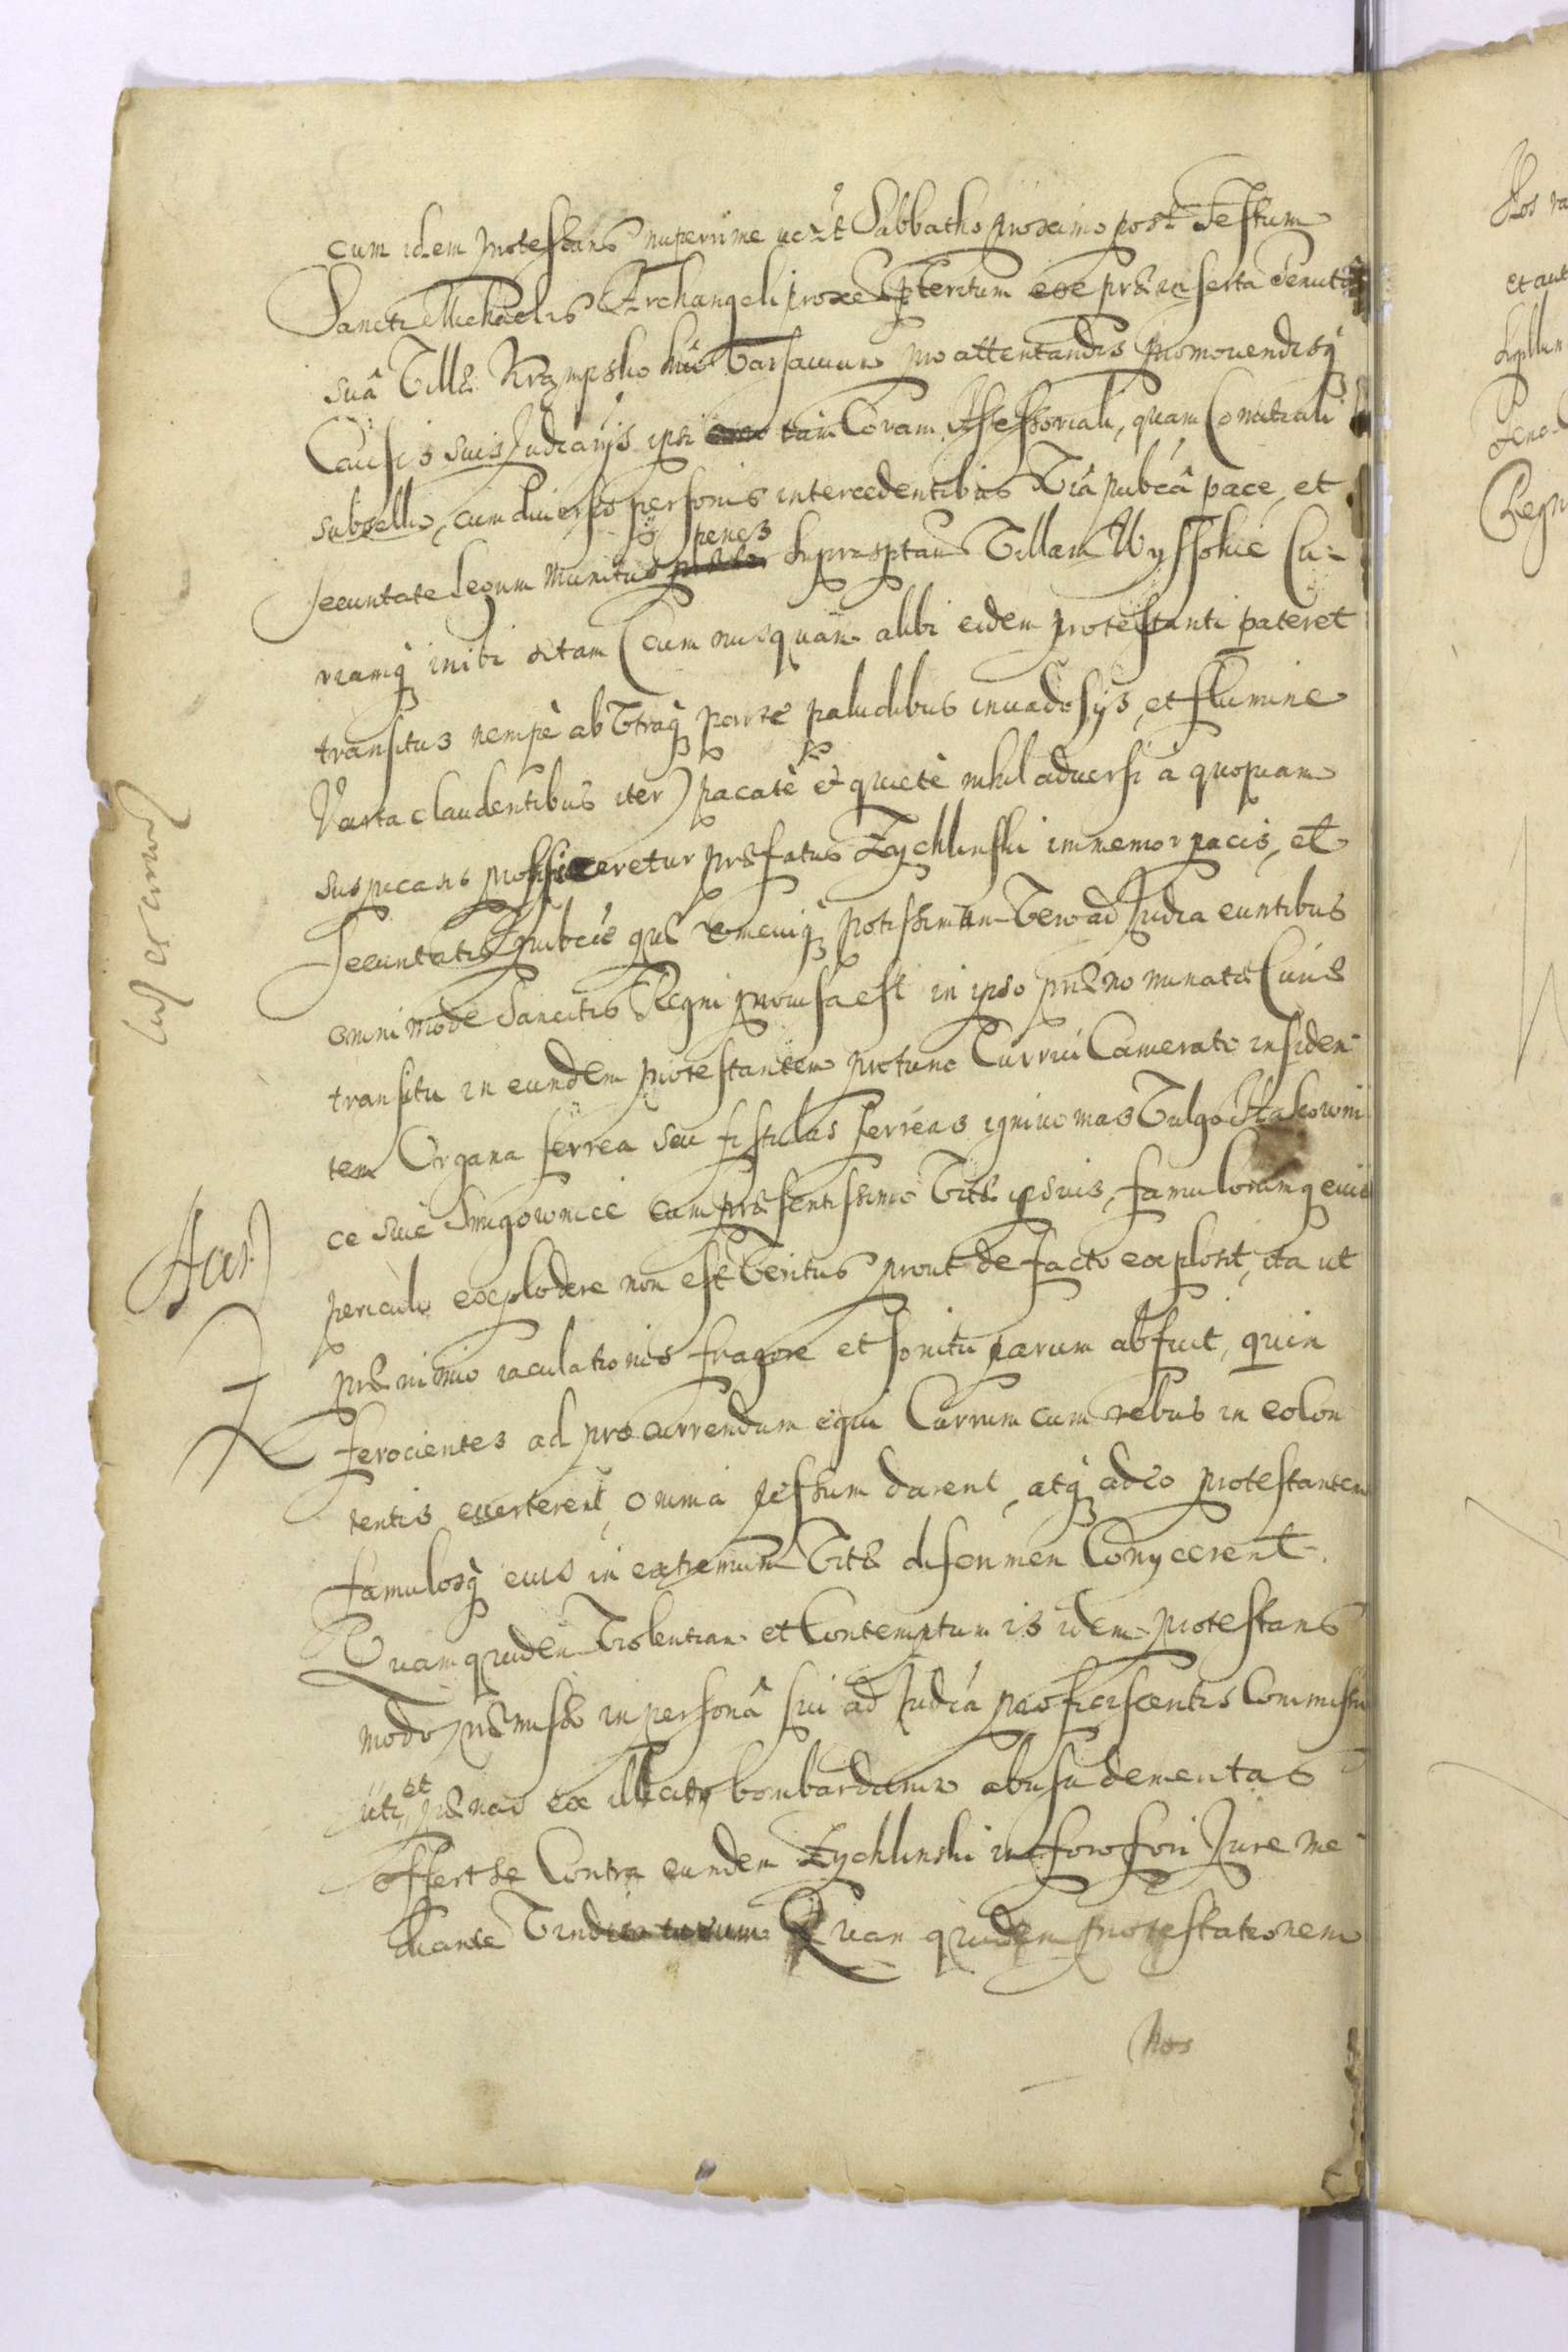 cum idem protestans nuperrime ut Sabbatho proximo post Festum
Sancti Michaelis Archangeli proxe pteritum exe præinserta tenuta
suâ Villæ Krąmpsko huc Varsaviam pro attentandis promovendisq
Causis suis Judiciarijs ipsi tam Coram Assessoriali, quam Comitiali
subsellio, cum diversis personis intercedentibus Viâ pubcâ pace, et
securitate legum munitus penes suprascptam Villam Wyssokie Cu-
riamq inibi sitam (cum nusquam alibi eidem protestanti pateret
transitus nempè ab Utraq parte paludibus invadosijs, et flumine
Varta claudentibus iter) pacatè et quietè nihil adversi a quopiam
suspicans proficisceretur præfatus Zychlinski immemor pacis, et
Securitatis pubcæ quæ omniq potissimum Vero ad Judia euntibus
omnimode Sancitis Regni provisa est in ipso prænominatæ Curiæ
transitu in eundem protestantem protunc Currui Camerato insiden-
tem Organa ferrea seu fistulas ferreas ignivomas Vulgo Hakowni
ce sive Smigownice cum præsentissimo Vitæ ipsius, famulorumq eius
periculo explodere non est Veritus prout de facto explosit, ita ut
præ nimio iaculationis fragore et sonitu parum abfuit, quin
ferocientes ad procurrendum equi Currum cum rebus in eo con
tentis everterent, omnia pessum darent, atq adeo protestantem
famulosq eius in extremum Vitæ discrimen Conycerent.
Quamquidem Violentiam et Contemptum is idem protestans
modo præmisso in personâ sui ad Judia proficiscentis Commissum
uti et pænas ex illicito bombardarum abusu demeritas
offert se Contra eundem Zychlinski in foro fori Jure me-
diante Quam quidem protestationem
Nos